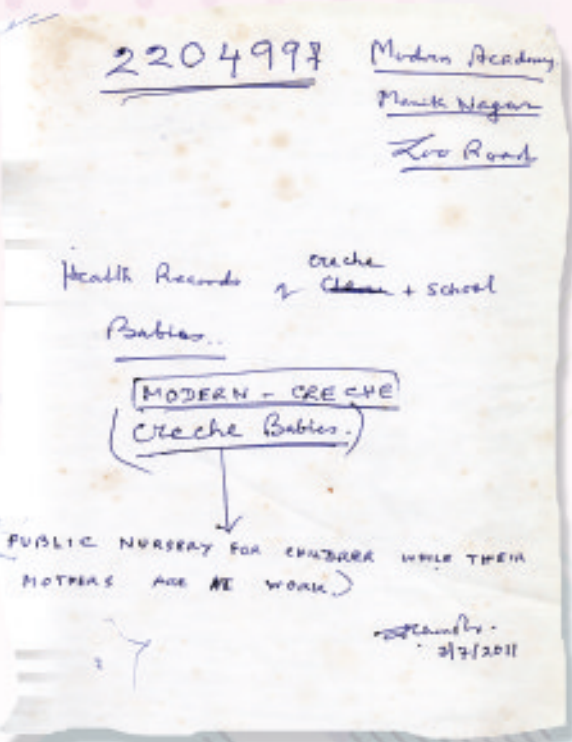 2204997
Modern Academy
Manik Nagar
Zoo Road
creche
Health Records of + School
Babies..
MODERN - CRECHE
(Creche Babies.)
(PUBLIC NURSERY FOR CHILDREN WHILE THEIR
MOTHERS ARE AT WORK.)
2/7/2011